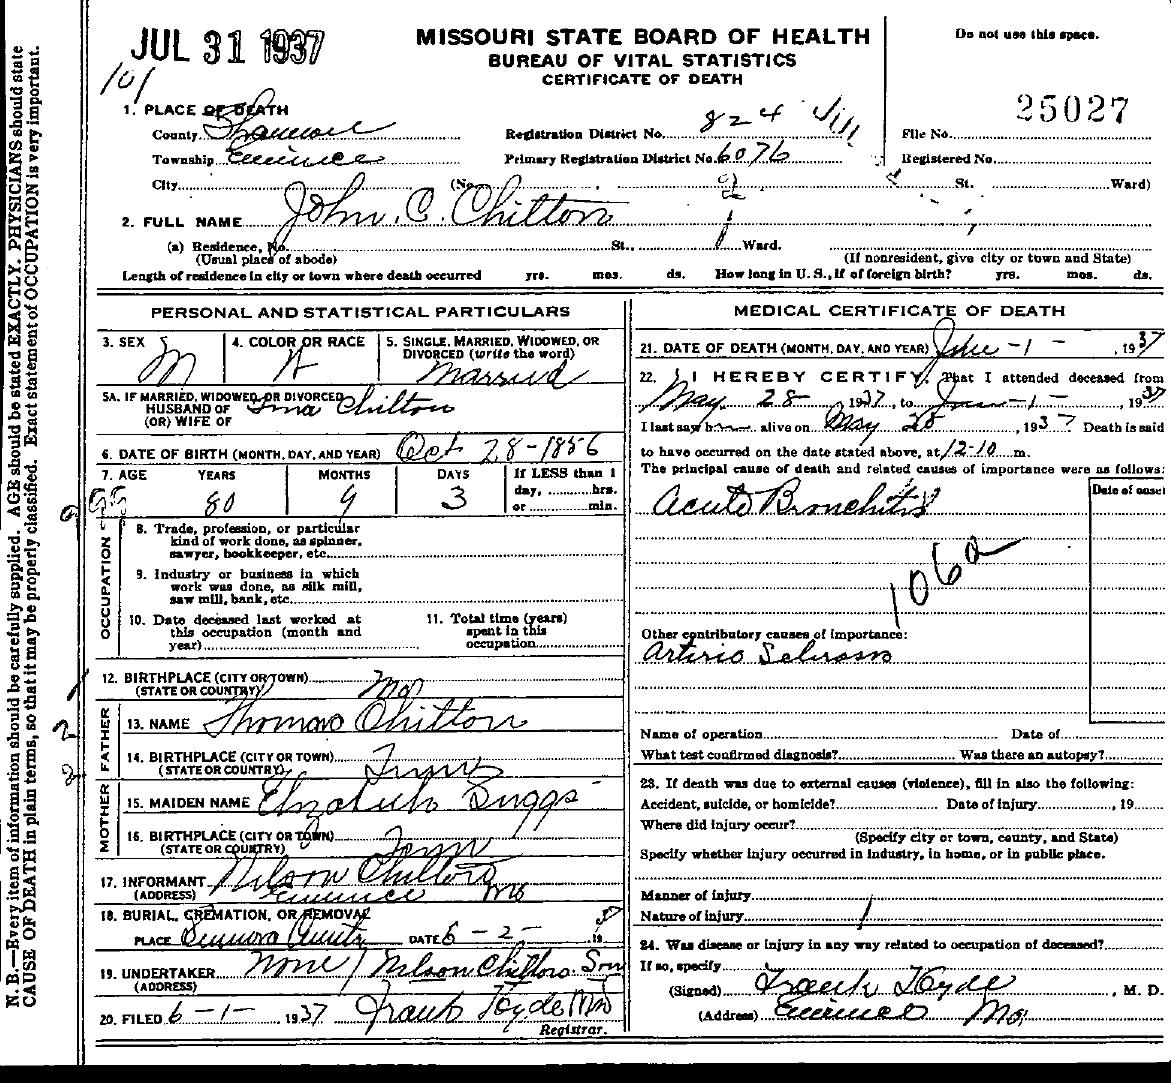 JUL 31 1937
MISSOURI STATE BOARD OF HEALTH
BUREAU OF VITAL STATISTICS
CERTIFICATE OF DEATH
Do not use this space.
101
25027
1. PLACE OF DEATH
County Shannon Registration District No. 824 File No.
Township Eminence Primary Registration District No. 6076 Registered No.
City (No. St. Ward)
2. FULL NAME John. C. Chilton
(a) Residence, No. St., Ward.
(Usual place of abode) (If nonresident, give city or town and State)
Length of residence in city or town where death occurred yrs. mos. ds. How long in U. S., if of foreign birth? yrs. mos. ds.
PERSONAL AND STATISTICAL PARTICULARS
3. SEX M 4. COLOR OR RACE W 5. SINGLE, MARRIED, WIDOWED, OR DIVORCED (write the word) Married
5A. IF MARRIED, WIDOWED, OR DIVORCED
HUSBAND OF Chilton
(OR) WIFE OF
6. DATE OF BIRTH (MONTH, DAY, AND YEAR) Oct 28-1856
7. AGE YEARS MONTHS DAYS If LESS than 1
80 9 3 day, hrs.
or min.
OCCUPATION
8. Trade, profession, or particular
kind of work done, as spinner,
sawyer, bookkeeper, etc.
9. Industry or business in which
work was done, as silk mill,
saw mill, bank, etc.
10. Date deceased last worked at
this occupation (month and
year)
11. Total time (years)
spent in this
occupation
12. BIRTHPLACE (CITY OR TOWN) Mo
(STATE OR COUNTRY)
FATHER
13. NAME Thomas Chilton
14. BIRTHPLACE (CITY OR TOWN) Tenn
(STATE OR COUNTRY)
MOTHER
15. MAIDEN NAME Elizabeth Suggs
16. BIRTHPLACE (CITY OR TOWN) Tenn
(STATE OR COUNTRY)
17. INFORMANT Nilson Chilton
(ADDRESS) Eminence Mo
18. BURIAL, CREMATION, OR REMOVAL
PLACE DATE 6-2- 1937
19. UNDERTAKER None / Nilson Chilton Son
(ADDRESS)
20. FILED 6-1- 1937 Frank Hyde MD
Registrar.
MEDICAL CERTIFICATE OF DEATH
21. DATE OF DEATH (MONTH, DAY, AND YEAR) June -1- , 1937
22. I HEREBY CERTIFY, That I attended deceased from
May 28, 1937, to June -1-, 1937
I last saw h alive on May 28, 1937 Death is said
to have occurred on the date stated above, at 12-10 m.
The principal cause of death and related causes of importance were as follows:
Date of onset
Acute Bronchitis
106a
Other contributory causes of importance:
Arterio Sclrosis
Name of operation Date of
What test confirmed diagnosis? Was there an autopsy?
23. If death was due to external causes (violence), fill in also the following:
Accident, suicide, or homicide? Date of injury , 19
Where did injury occur?
(Specify city or town, county, and State)
Specify whether injury occurred in industry, in home, or in public place.
Manner of injury
Nature of injury
24. Was disease or injury in any way related to occupation of deceased?
If so, specify
(Signed) Frank Hyde , M. D.
(Address) Eminence Mo.
N. B.—Every item of information should be carefully supplied. AGE should be stated EXACTLY. PHYSICIANS should state
CAUSE OF DEATH in plain terms, so that it may be properly classified. Exact statement of OCCUPATION is very important.